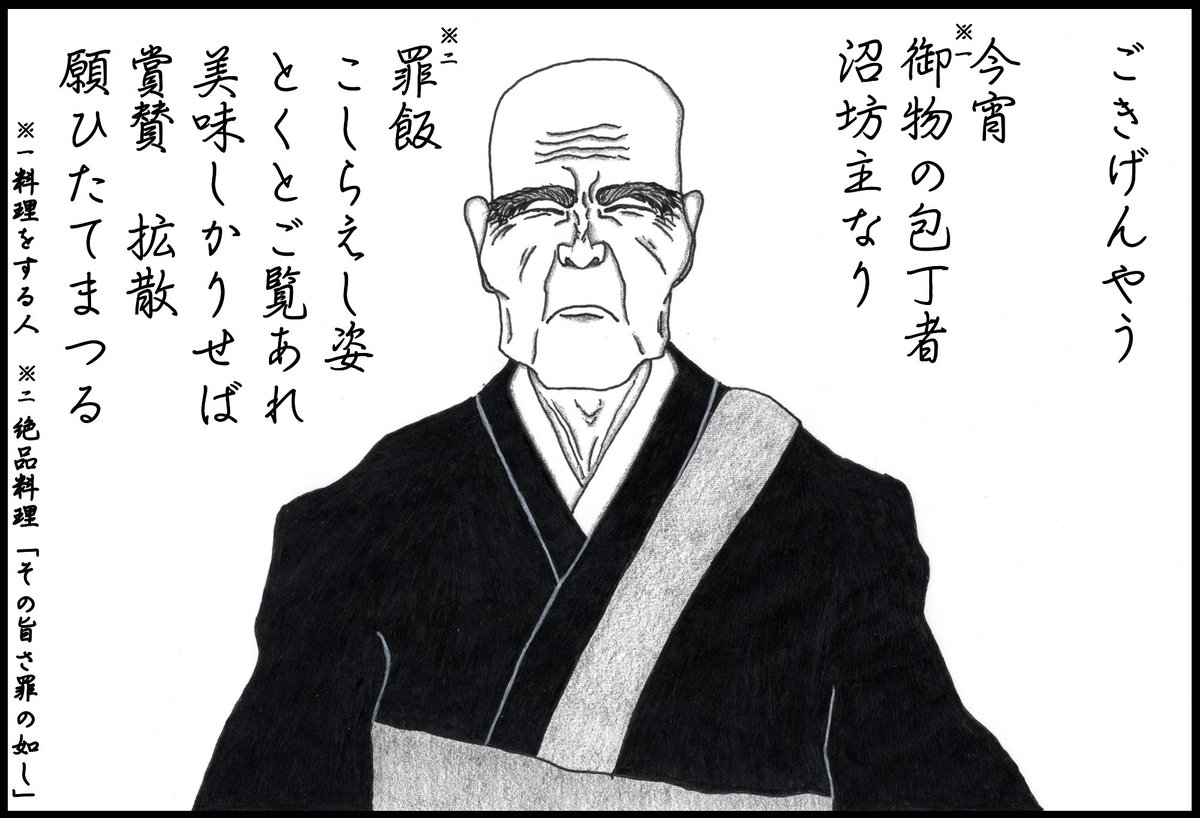 ごきげんやう
今宵
御物の包丁者※一
沼坊主なり
罪飯※二
こしらえし姿
とくとご覧あれ
美味しかりせば
賞賛 拡散
願ひたてまつる
※一料理をする人 ※二絶品料理「その旨さ罪の如し」